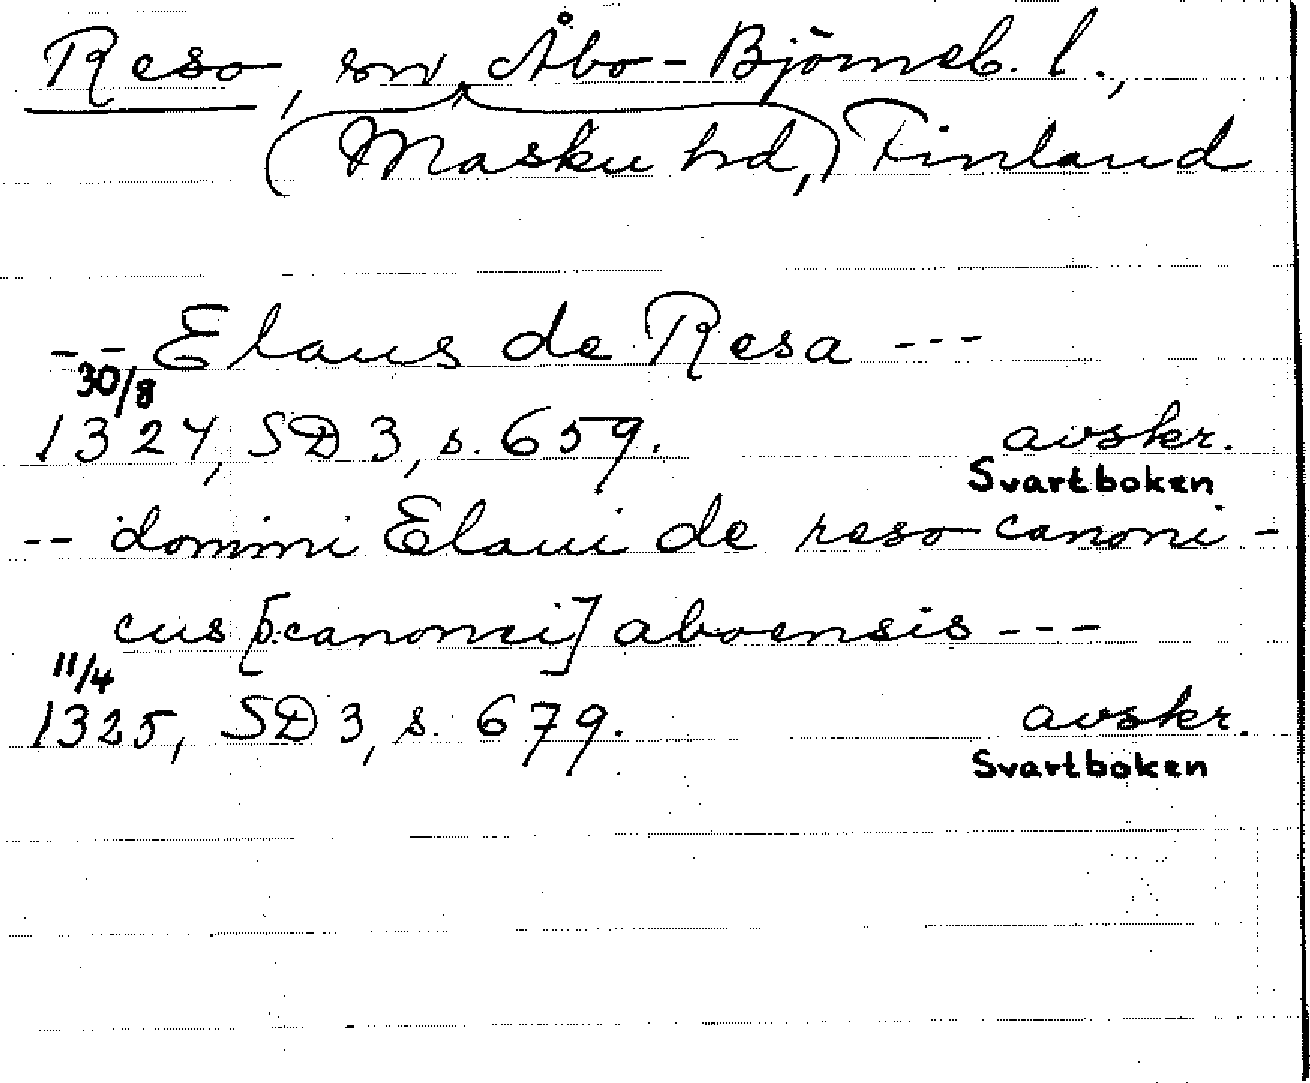 Reso, sn, Åbo-Björneb. l.,
(Masku hd,) Finland
-- Elaus de Resa ---
30/8
1324, SD 3, s. 659. avskr.
Svartboken
-- domini Elaui de reso canoni-
cus [ɔ: canonici] aboensis ---
11/4
1325, SD 3, s. 679. avskr.
Svartboken